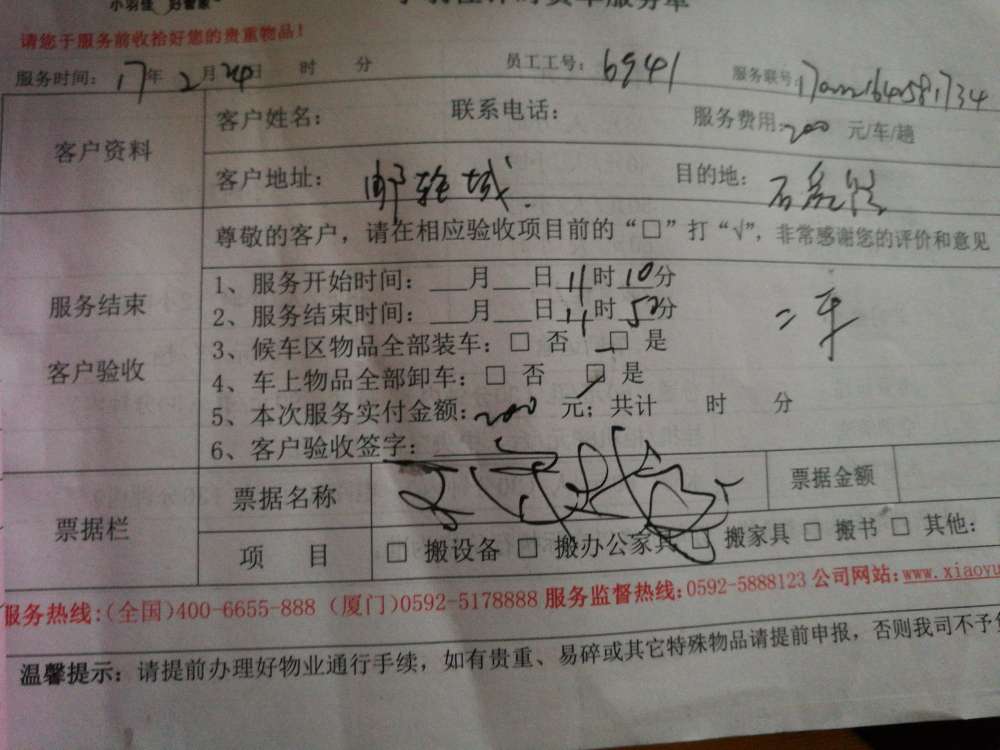 小羽佳 好管家
请您于服务前收拾好您的贵重物品！
服务时间：17年2月24日 时 分 员工工号：6941 服务联号：
客户资料
客户姓名： 联系电话： 服务费用：200 元/车/趟
客户地址：邮轮城 目的地：
尊敬的客户，请在相应验收项目前的“□”打“√”，非常感谢您的评价和意见
服务结束
客户验收
1、服务开始时间：___月___日 11时10分
2、服务结束时间：___月___日 11时50分
二车
3、候车区物品全部装车：□ 否 □ 是
4、车上物品全部卸车：□ 否 □ 是
5、本次服务实付金额：200 元；共计 时 分
6、客户验收签字：
票据栏
票据名称 票据金额
项 目 □ 搬设备 □ 搬办公家具 □ 搬家具 □ 搬书 □ 其他：
服务热线：（全国）400-6655-888（厦门）0592-5178888 服务监督热线：0592-5888123 公司网站：www.xiaoyu
温馨提示：请提前办理好物业通行手续，如有贵重、易碎或其它特殊物品请提前申报，否则我司不予